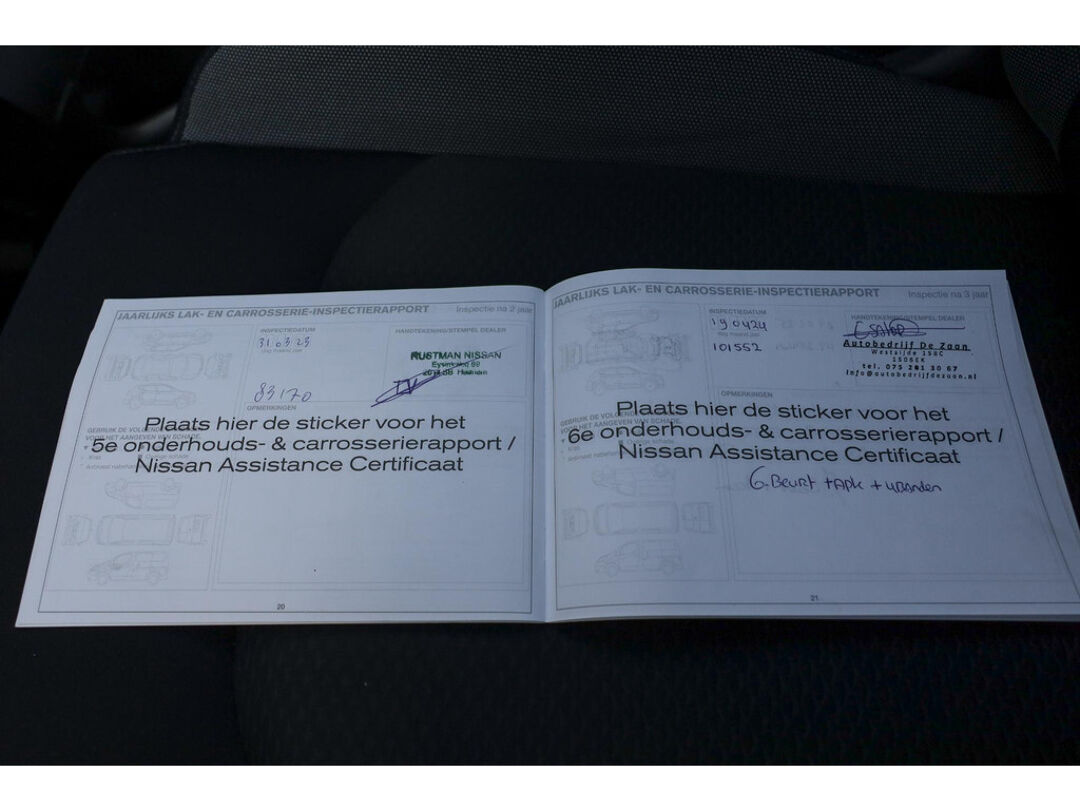 JAARLIJKS LAK- EN CARROSSERIE-INSPECTIERAPPORT
Inspectie na 2 jaar
INSPECTIEDATUM
31.03.23
HANDTEKENING/STEMPEL DEALER
RUSTMAN NISSAN
83170
OPMERKINGEN
GEBRUIK DE VOLGENDE
VOOR HET AANGEVEN VAN SCHADE.
Plaats hier de sticker voor het
5e onderhouds- & carrosserierapport /
Nissan Assistance Certificaat
20
JAARLIJKS LAK- EN CARROSSERIE-INSPECTIERAPPORT
Inspectie na 3 jaar
INSPECTIEDATUM
190424
101552
HANDTEKENING/STEMPEL DEALER
Autobedrijf De Zaan
Westzijde 350C
1506EK
tel. 075 281 30 67
info@autobedrijfdezaan.nl
OPMERKINGEN
GEBRUIK DE VOLGENDE
VOOR HET AANGEVEN VAN SCHADE.
Plaats hier de sticker voor het
6e onderhouds- & carrosserierapport /
Nissan Assistance Certificaat
6. Beurt + APK + 4 Banden
21